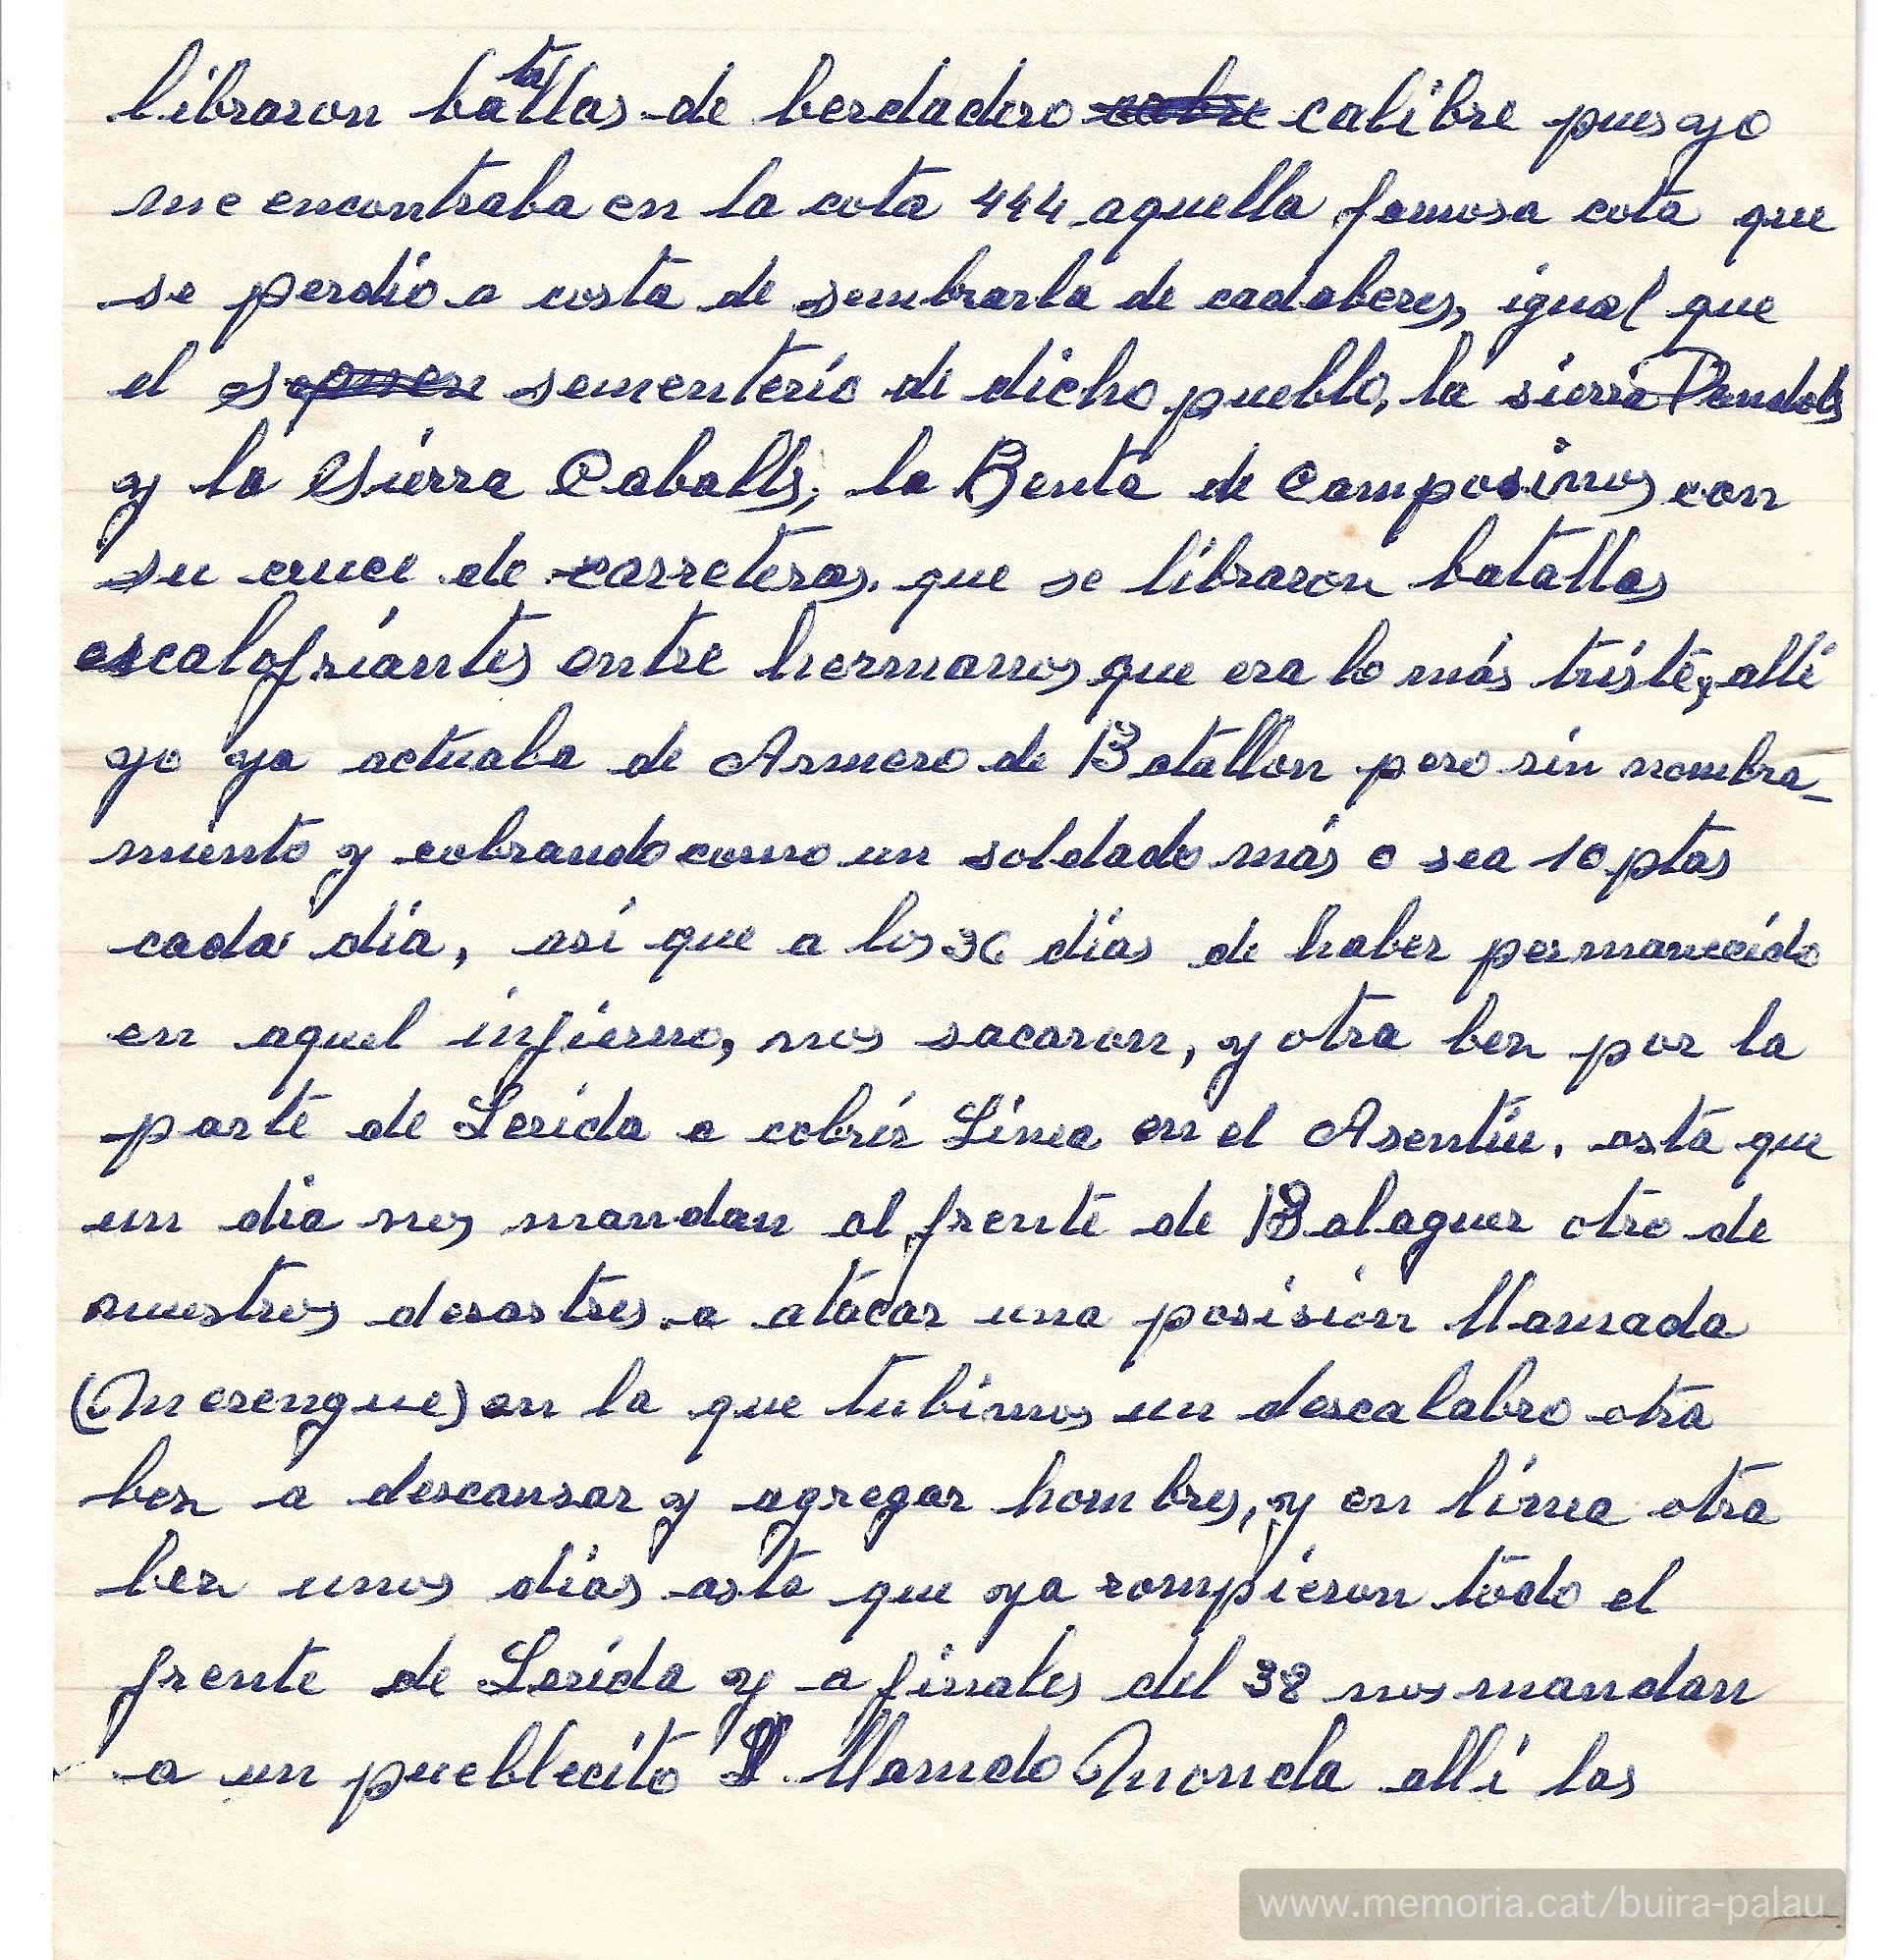 libraron batallas de berdadero calibre pues yo
me encontraba en la cota 444 aquella famosa cota que
se perdio a costa de sembrarla de cadaberes, igual que
el sementerio de dicho pueblo, la sierra Pandols
y la Sierra Caballs, la Benta de Camposinos con
su cruce de carreteras. que se libraron batallas
escalofriantes entre hermanos que era lo más triste, alli
yo ya actuaba de Armero de Batallon pero sin nombra-
miento y cobrando como un soldado más o sea 10 ptas
cada dia, asi que a los 36 dias de haber permanecido
en aquel infierno, nos sacaron, y otra bez por la
parte de Lerida a cobrir Linea en el Asentiu. asta que
un dia nos mandan al frente de Balaguer otro de
nuestros desastres a atacar una posision llamada
(Merengue) en la que tubimos un descalabro otra
bez a descansar y agregar hombres, y en linea otra
bez unos dias asta que ya rompieron todo el
frente de Lerida y a finales del 38 nos mandan
a un pueblecito llamdo Moncla alli las
www.memoria.cat/buira-palau